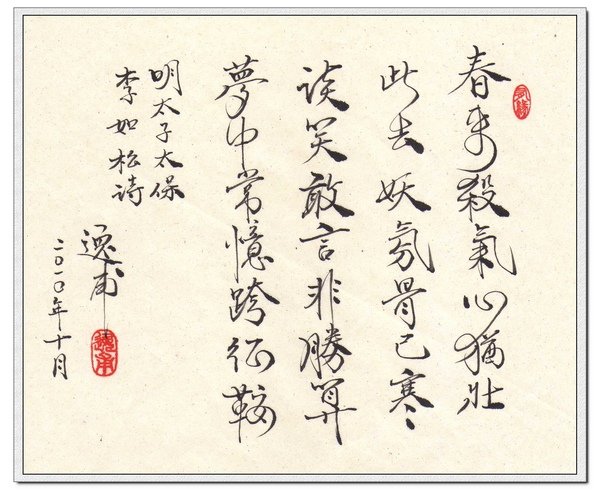 春来殺氣心猶壯
此去妖氛骨已寒
谈笑敢言非勝算
夢中常憶跨征鞍
明太子太保
李如松诗
逸甫
二〇一〇年十月
逸甫